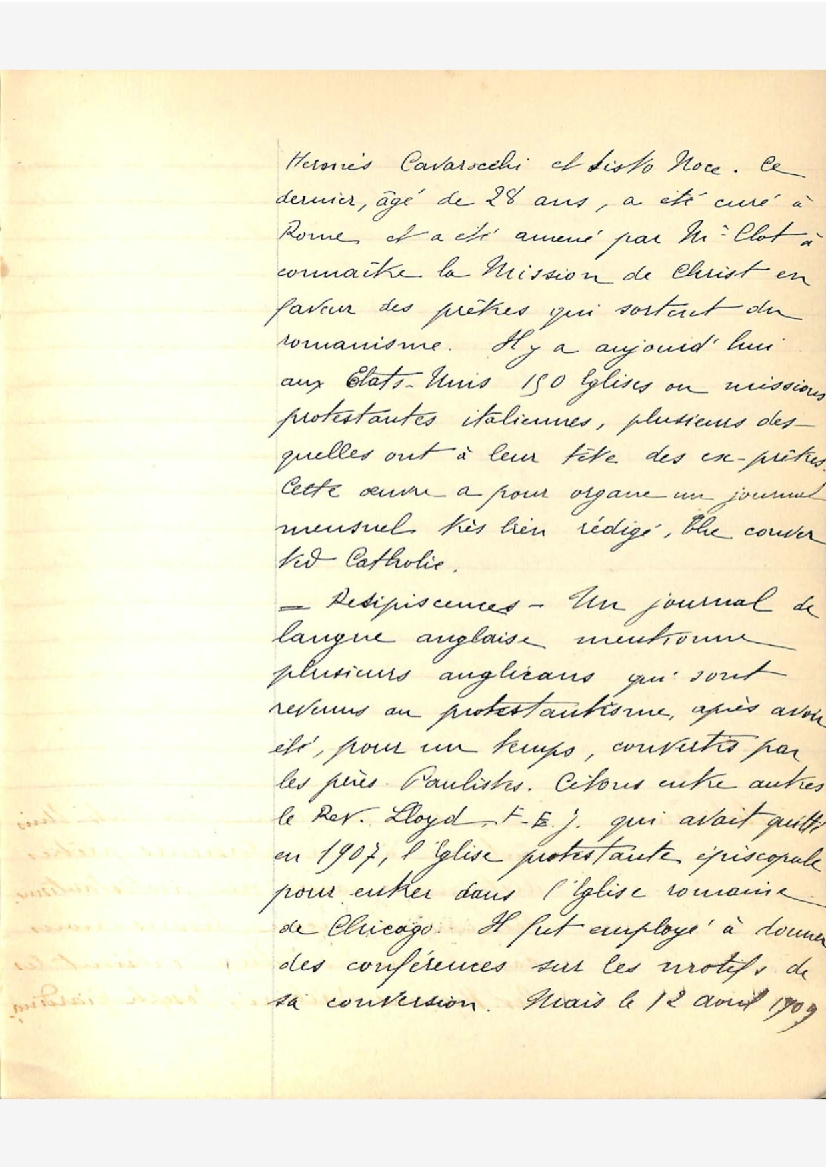 Hermès Cavarocchi et Sisto Noce. Ce
dernier, âgé de 28 ans, a été curé à
Rome et a été amené par Mr Clot à
connaître la Mission de Christ en
faveur des prêtres qui sortent du
romanisme. Il y a aujourd'hui
aux États-Unis 150 Eglises ou missions
protestantes italiennes, plusieurs des-
quelles ont à leur tête des ex-prêtres.
Cette œuvre a pour organe un journal
mensuel très bien rédigé, The conver
ted Catholic.
— Resipiscences - Un journal de
langue anglaise mentionne
plusieurs anglicans qui sont
revenus au protestantisme, après avoir
été, pour un temps, convertis par
les pères Paulistes. Citons entre autres
le Rev. Lloyd F-E J. qui avait quitté
en 1907, l'Eglise protestante épiscopale
pour entrer dans l'Eglise romaine
de Chicago. Il fut employé à donner
des conférences sur les motifs de
sa conversion. Mais le 12 avril 1909